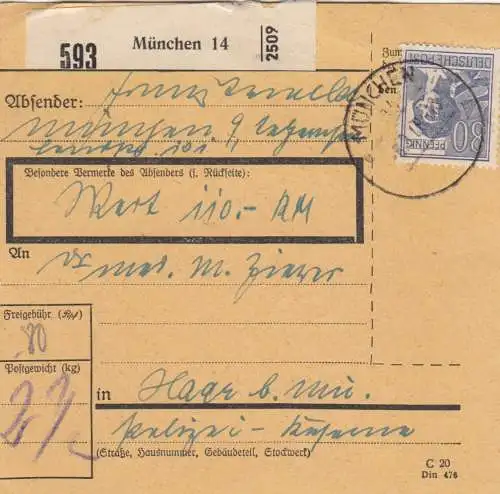 593
München 14
2509
Absender:
München 9,
Besondere Vermerke des Absenders (s. Rückseite):
Wert 110.- RM
An
Dr med. M.
Freigebühr (Rpf)
80
Postgewicht (kg)
in
Haar b. Mü.
Polizei-Kaserne
(Straße, Hausnummer, Gebäudeteil, Stockwerk)
C 20
Din 476
Zum
ben
DEUTSCHE POST
80
PFENNIG
MÜNCHEN